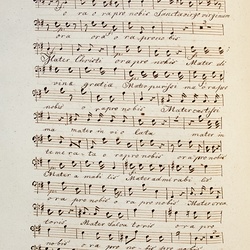 ra ora pro nobis Sancta virgo virginum
ora ora o ra pro no bis
Mater Christi ora pro nobis Mater di
vinæ gratiæ Mater purissi ma ora pro
nobis o ra pro nobis Mater castis
ma mater in vi o lata mater in
temera ta o ra pro nobis ora pro nobis
Mater a mabi lis Mater admirabi lis
ora pro nobis o ra pro nobis Mater Crea
toris Mater Salva toris ora pro
nobis o ra pro no bis pro nobis